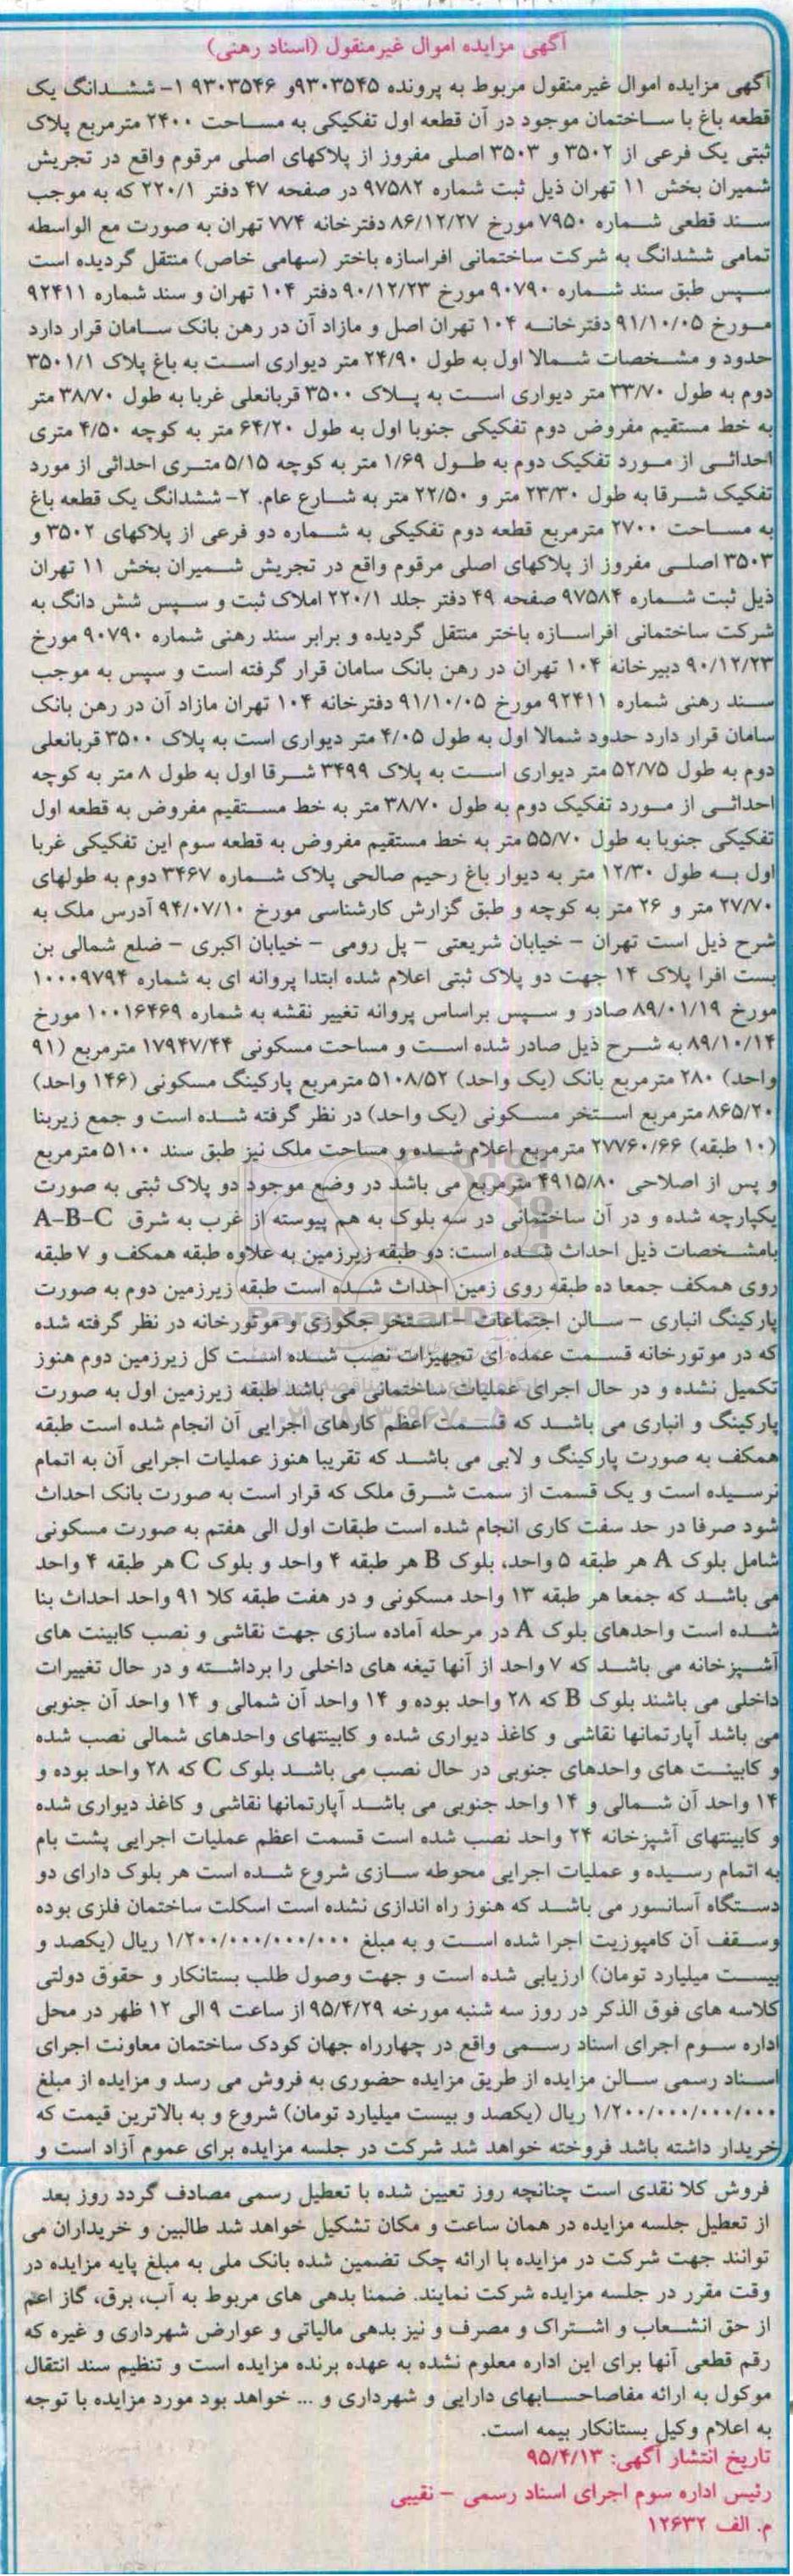 آگهی مزایده اموال غیرمنقول (اسناد رهنی)
آگهی مزایده اموال غیرمنقول مربوط به پرونده ۹۳۰۳۵۴۵و ۹۳۰۳۵۴۶ ۱- ششدانگ یک
قطعه باغ با ساختمان موجود در آن قطعه اول تفکیکی به مساحت ۲۴۰۰ مترمربع پلاک
ثبتی یک فرعی از ۳۵۰۲ و ۳۵۰۳ اصلی مفروز از پلاکهای اصلی مرقوم واقع در تجریش
شمیران بخش ۱۱ تهران ذیل ثبت شماره ۹۷۵۸۲ در صفحه ۴۷ دفتر ۲۲۰/۱ که به موجب
سند قطعی شماره ۷۹۵۰ مورخ ۸۶/۱۲/۲۷ دفترخانه ۷۷۴ تهران به صورت مع الواسطه
تمامی ششدانگ به شرکت ساختمانی افراسازه باختر (سهامی خاص) منتقل گردیده است
سپس طبق سند شماره ۹۰۷۹۰ مورخ ۹۰/۱۲/۲۳ دفتر ۱۰۴ تهران و سند شماره ۹۲۴۱۱
مورخ ۹۱/۱۰/۰۵ دفترخانه ۱۰۴ تهران اصل و مازاد آن در رهن بانک سامان قرار دارد
حدود و مشخصات شمالا اول به طول ۲۴/۹۰ متر دیواری است به باغ پلاک ۳۵۰۱/۱
دوم به طول ۳۳/۷۰ متر دیواری است به پلاک ۳۵۰۰ قربانعلی غربا به طول ۳۸/۷۰ متر
به خط مستقیم مفروض دوم تفکیکی جنوبا اول به طول ۶۴/۲۰ متر به کوچه ۴/۵۰ متری
احداثی از مورد تفکیک دوم به طول ۱/۶۹ متر به کوچه ۵/۱۵ متری احداثی از مورد
تفکیک شرقا به طول ۲۳/۳۰ متر و ۲۲/۵۰ متر به شارع عام. ۲- ششدانگ یک قطعه باغ
به مساحت ۲۷۰۰ مترمربع قطعه دوم تفکیکی به شماره دو فرعی از پلاکهای ۳۵۰۲ و
۳۵۰۳ اصلی مفروز از پلاکهای اصلی مرقوم واقع در تجریش شمیران بخش ۱۱ تهران
ذیل ثبت شماره ۹۷۵۸۴ صفحه ۴۹ دفتر جلد ۲۲۰/۱ املاک ثبت و سپس شش دانگ به
شرکت ساختمانی افراسازه باختر منتقل گردیده و برابر سند رهنی شماره ۹۰۷۹۰ مورخ
۹۰/۱۲/۲۳ دبیرخانه ۱۰۴ تهران در رهن بانک سامان قرار گرفته است و سپس به موجب
سند رهنی شماره ۹۲۴۱۱ مورخ ۹۱/۱۰/۰۵ دفترخانه ۱۰۴ تهران مازاد آن در رهن بانک
سامان قرار دارد حدود شمالا اول به طول ۴/۰۵ متر دیواری است به پلاک ۳۵۰۰ قربانعلی
دوم به طول ۵۲/۷۵ متر دیواری است به پلاک ۳۴۹۹ شرقا اول به طول ۸ متر به کوچه
احداثی از مورد تفکیک دوم به طول ۳۸/۷۰ متر به خط مستقیم مفروض به قطعه اول
تفکیکی جنوبا به طول ۵۵/۷۰ متر به خط مستقیم مفروض به قطعه سوم این تفکیکی غربا
اول به طول ۱۲/۳۰ متر به دیوار باغ رحیم صالحی پلاک شماره ۳۴۶۷ دوم به طولهای
۲۷/۷۰ متر و ۲۶ متر به کوچه و طبق گزارش کارشناسی مورخ ۹۴/۰۷/۱۰ آدرس ملک به
شرح ذیل است تهران - خیابان شریعتی - پل رومی - خیابان اکبری - ضلع شمالی بن
بست افرا پلاک ۱۴ جهت دو پلاک ثبتی اعلام شده ابتدا پروانه ای به شماره ۱۰۰۰۹۷۹۴
مورخ ۸۹/۰۱/۱۹ صادر و سپس براساس پروانه تغییر نقشه به شماره ۱۰۰۱۶۴۶۹ مورخ
۸۹/۱۰/۱۴ به شرح ذیل صادر شده است و مساحت مسکونی ۱۷۹۴۷/۴۴ مترمربع (۹۱
واحد) ۲۸۰ مترمربع بانک (یک واحد) ۵۱۰۸/۵۲ مترمربع پارکینگ مسکونی (۱۴۶ واحد)
۸۶۵/۲۰ مترمربع استخر مسکونی (یک واحد) در نظر گرفته شده است و جمع زیربنا
(۱۰ طبقه) ۲۷۷۶۰/۶۶ مترمربع اعلام شده و مساحت ملک نیز طبق سند ۵۱۰۰ مترمربع
و پس از اصلاحی ۴۹۱۵/۸۰ مترمربع می باشد در وضع موجود دو پلاک ثبتی به صورت
یکپارچه شده و در آن ساختمانی در سه بلوک به هم پیوسته از غرب به شرق A-B-C
بامشخصات ذیل احداث شده است: دو طبقه زیرزمین به علاوه طبقه همکف و ۷ طبقه
روی همکف جمعا ده طبقه روی زمین احداث شده است طبقه زیرزمین دوم به صورت
پارکینگ انباری - سالن اجتماعات - استخر جکوزی و موتورخانه در نظر گرفته شده
که در موتورخانه قسمت عمده ای تجهیزات نصب شده است کل زیرزمین دوم هنوز
تکمیل نشده و در حال اجرای عملیات ساختمانی می باشد طبقه زیرزمین اول به صورت
پارکینگ و انباری می باشد که قسمت اعظم کارهای اجرایی آن انجام شده است طبقه
همکف به صورت پارکینگ و لابی می باشد که تقریبا هنوز عملیات اجرایی آن به اتمام
نرسیده است و یک قسمت از سمت شرق ملک که قرار است به صورت بانک احداث
شود صرفا در حد سفت کاری انجام شده است طبقات اول الی هفتم به صورت مسکونی
شامل بلوک A هر طبقه ۵ واحد، بلوک B هر طبقه ۴ واحد و بلوک C هر طبقه ۴ واحد
می باشد که جمعا هر طبقه ۱۳ واحد مسکونی و در هفت طبقه کلا ۹۱ واحد احداث بنا
شده است واحدهای بلوک A در مرحله آماده سازی جهت نقاشی و نصب کابینت های
آشپزخانه می باشد که ۷ واحد از آنها تیغه های داخلی را برداشته و در حال تغییرات
داخلی می باشند بلوک B که ۲۸ واحد بوده و ۱۴ واحد آن شمالی و ۱۴ واحد آن جنوبی
می باشد آپارتمانها نقاشی و کاغذ دیواری شده و کابینتهای واحدهای شمالی نصب شده
و کابینت های واحدهای جنوبی در حال نصب می باشد بلوک C که ۲۸ واحد بوده و
۱۴ واحد آن شمالی و ۱۴ واحد جنوبی می باشد آپارتمانها نقاشی و کاغذ دیواری شده
و کابینتهای آشپزخانه ۲۴ واحد نصب شده است قسمت اعظم عملیات اجرایی پشت بام
به اتمام رسیده و عملیات اجرایی محوطه سازی شروع شده است هر بلوک دارای دو
دستگاه آسانسور می باشد که هنوز راه اندازی نشده است اسکلت ساختمان فلزی بوده
وسقف آن کامپوزیت اجرا شده است و به مبلغ ۱/۲۰۰/۰۰۰/۰۰۰/۰۰۰ ریال (یکصد و
بیست میلیارد تومان) ارزیابی شده است و جهت وصول طلب بستانکار و حقوق دولتی
کلاسه های فوق الذکر در روز سه شنبه مورخه ۹۵/۴/۲۹ از ساعت ۹ الی ۱۲ ظهر در محل
اداره سوم اجرای اسناد رسمی واقع در چهارراه جهان کودک ساختمان معاونت اجرای
اسناد رسمی سالن مزایده از طریق مزایده حضوری به فروش می رسد و مزایده از مبلغ
۱/۲۰۰/۰۰۰/۰۰۰/۰۰۰ ریال (یکصد و بیست میلیارد تومان) شروع و به بالاترین قیمت که
خریدار داشته باشد فروخته خواهد شد شرکت در جلسه مزایده برای عموم آزاد است و
فروش کلا نقدی است چنانچه روز تعیین شده با تعطیل رسمی مصادف گردد روز بعد
از تعطیل جلسه مزایده در همان ساعت و مکان تشکیل خواهد شد طالبین و خریداران می
توانند جهت شرکت در مزایده با ارائه چک تضمین شده بانک ملی به مبلغ پایه مزایده در
وقت مقرر در جلسه مزایده شرکت نمایند. ضمنا بدهی های مربوط به آب، برق، گاز اعم
از حق انشعاب و اشتراک و مصرف و نیز بدهی مالیاتی و عوارض شهرداری و غیره که
رقم قطعی آنها برای این اداره معلوم نشده به عهده برنده مزایده است و تنظیم سند انتقال
موکول به ارائه مفاصاحسابهای دارایی و شهرداری و ... خواهد بود مورد مزایده با توجه
به اعلام وکیل بستانکار بیمه است.
تاریخ انتشار آگهی: ۹۵/۴/۱۳
رئیس اداره سوم اجرای اسناد رسمی - نقیبی
م. الف ۱۲۶۳۲